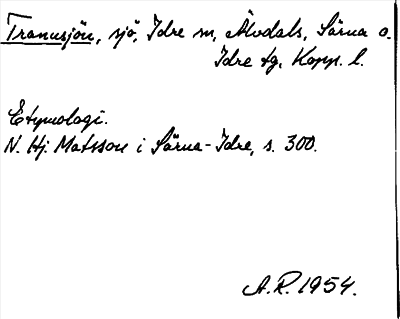 Tranusjön, sjö, Idre sn, Älvdals, Särna o.
Idre tg, Kopp. l.
Etymologi.
N. Hj. Matsson i Särna-Idre, s. 300.
A.R. 1954.